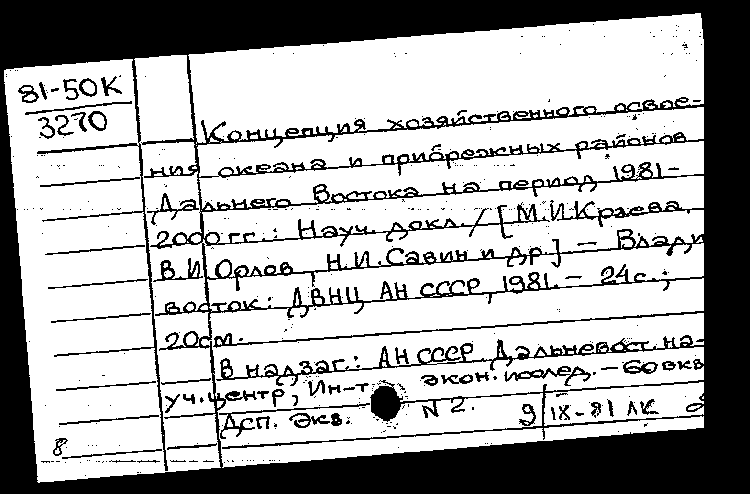 81-50К
3270
Концепция хозяйственного освое-
ния океана и прибрежных районов
Дальнего Востока на период 1981-
2000 гг.: Науч. докл. / [М.И.Краева,
В.И Орлов, Н.И.Савин и др] - Влади
восток: ДВНЦ АН СССР, 1981. - 24с.;
20см.
В надзаг.: АН СССР. Дальневост. на-
уч.центр, Ин-т экон. исслед. - 60 экз
Дсп. Экз. N 2.
9/IX-81 ЛК
8